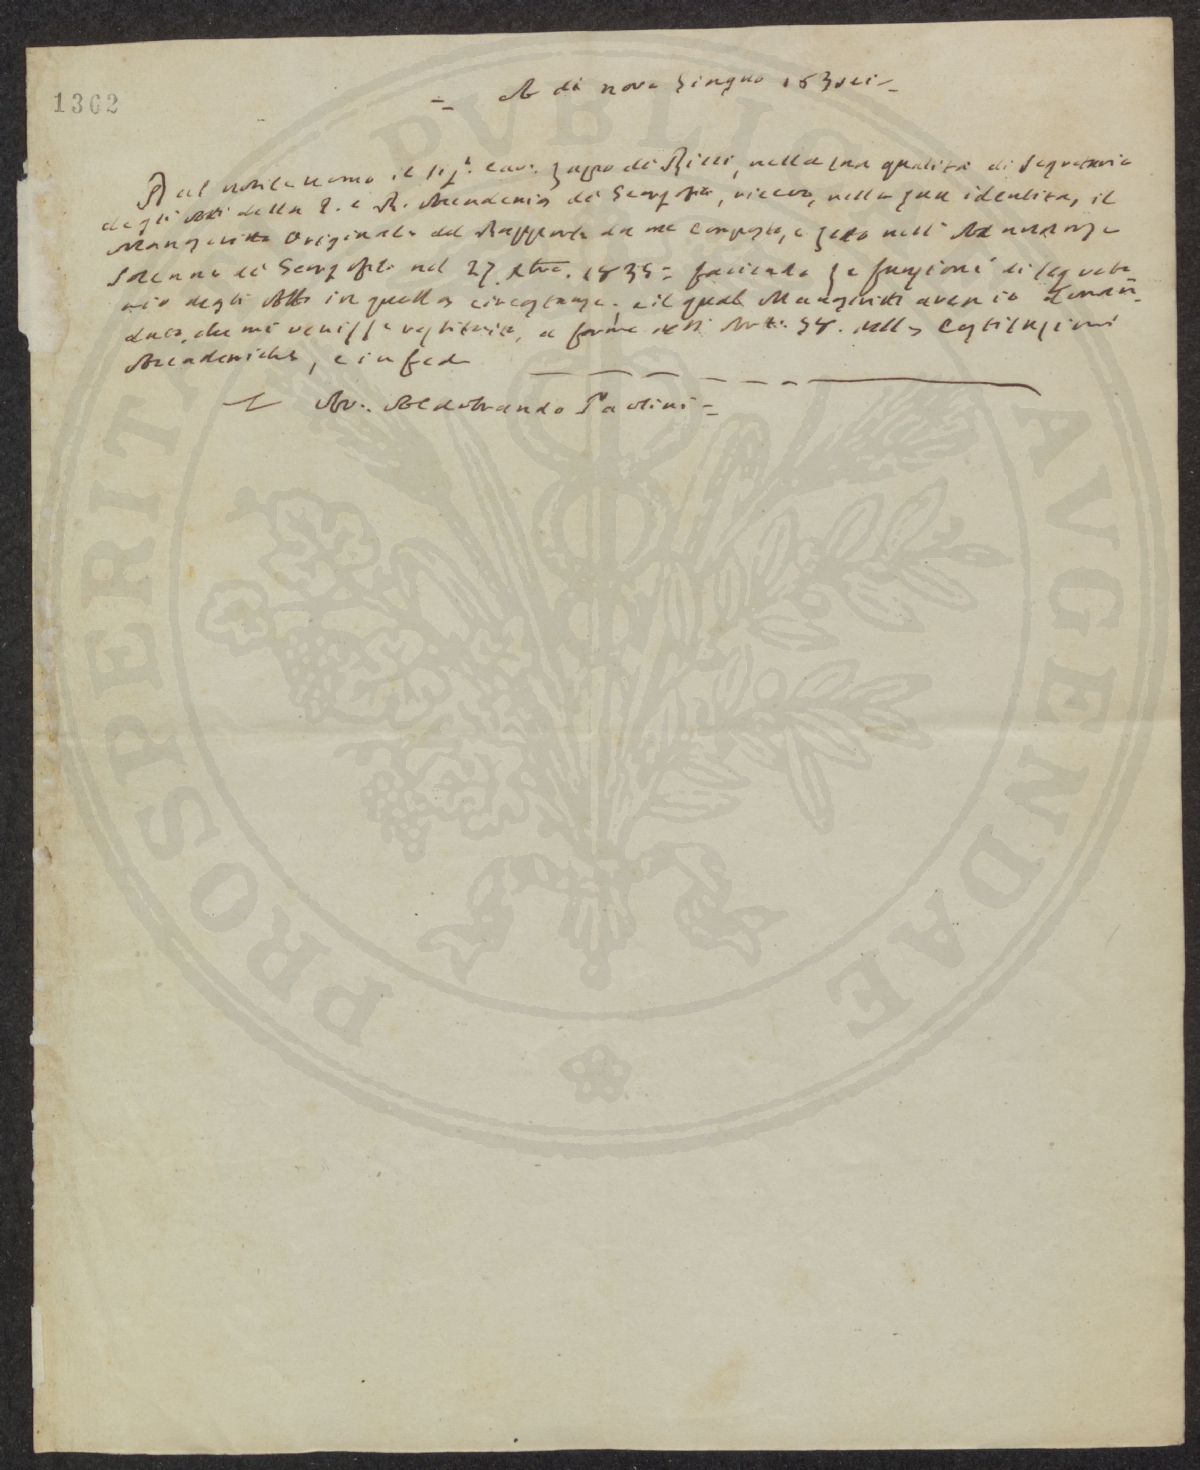 1362
= A dì nove Giugno 1836 =
Dal nobil uomo il Sig.r Cav. di Ricci, nella sua qualità di Segretario
degli Atti della I. e R. Accademia dei Georgofili, ricevo, nella sua identità, il
Manoscritto Originale del Rapporto da me composto, e letto nell' Adunanza
Solenne dei Georgofili nel 27 1835 = facendo le funzioni di Segreta-
rio degli Atti in quella circostanza: e il qual Manoscritto aveva io doman-
dato, che mi venisse restituito, a forma dell' Art. 58. delle Costituzioni
Accademiche, e in fede
= Av. Aldobrando Paolini =
PROSPERITATI PVBLICAE AVGENDAE